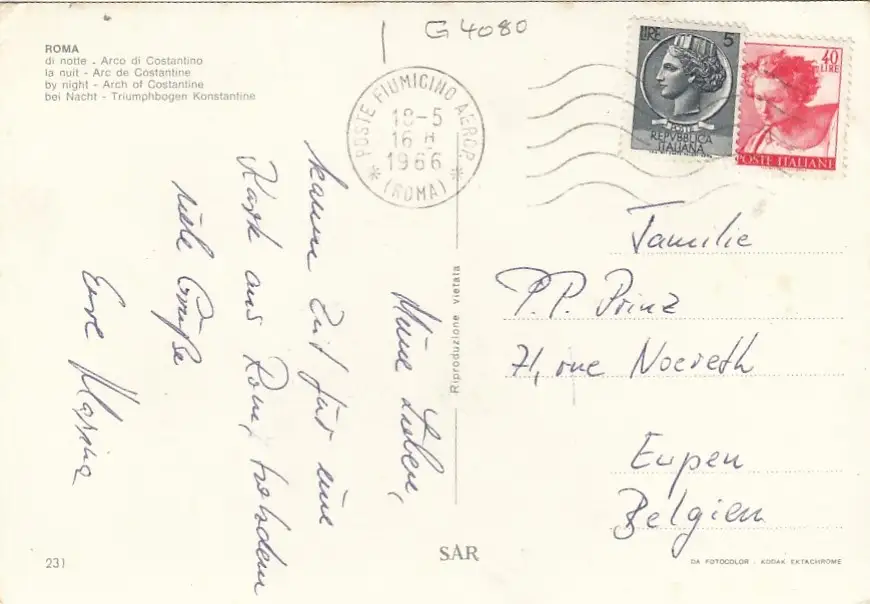 ROMA
di notte - Arco di Costantino
la nuit - Arc de Costantine
by night - Arch of Costantine
bei Nacht - Triumphbogen Konstantine
G 4080
POSTE FIUMICINO AEROP.
18-5
16 H
1966
* (ROMA) *
LIRE 5
POSTE
REPVBBLICA
ITALIANA
40
LIRE
POSTE ITALIANE
Meine Lieben,
kaum Zeit für eine
Karte aus Rom, trotzdem
viele Grüße
Eure
Riproduzione vietata
Familie
P.P. Prinz
71, rue Noereth
Eupen
Belgien
231
SAR
DA FOTOCOLOR - KODAK EKTACHROME